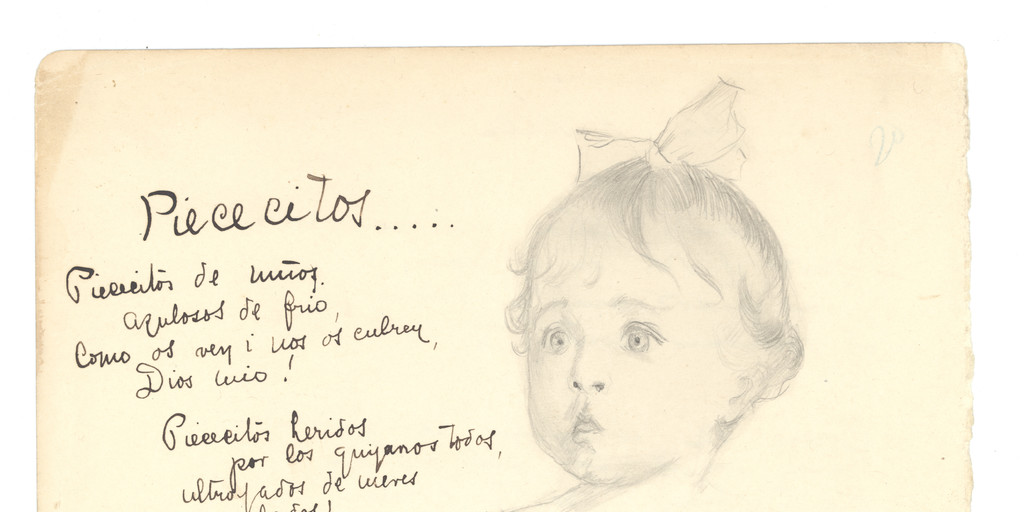 Piececitos.....
Piececitos de niños.
azulosos de frio,
Como os ven i nos os cubren,
Dios mio!
Piececitos heridos
por los guijanos todos,
ultrajados de nieves
lodos!